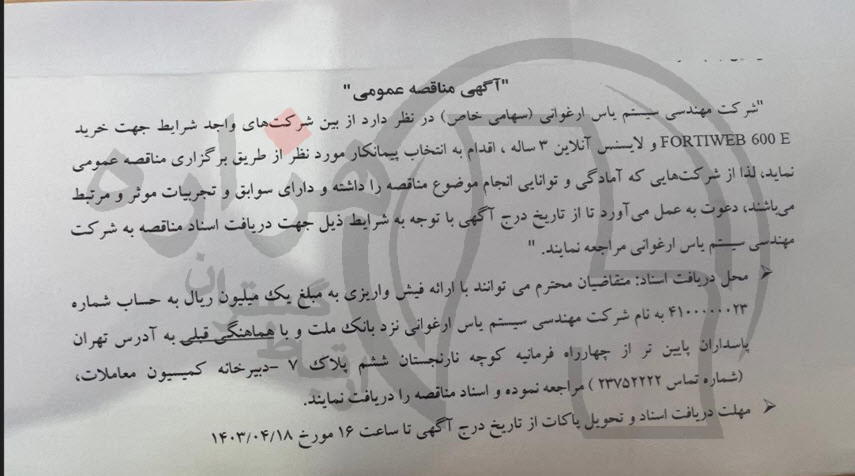 "آگهی مناقصه عمومی"
"شرکت مهندسی سیستم یاس ارغوانی (سهامی خاص) در نظر دارد از بین شرکت‌های واجد شرایط جهت خرید
FORTIWEB 600 E و لایسنس آنلاین ۳ ساله ، اقدام به انتخاب پیمانکار مورد نظر از طریق برگزاری مناقصه عمومی
نماید، لذا از شرکت‌هایی که آمادگی و توانایی انجام موضوع مناقصه را داشته و دارای سوابق و تجربیات موثر و مرتبط
می‌باشند، دعوت به عمل می‌آورد تا از تاریخ درج آگهی با توجه به شرایط ذیل جهت دریافت اسناد مناقصه به شرکت
مهندسی سیستم یاس ارغوانی مراجعه نمایند. "
➤ محل دریافت اسناد: متقاضیان محترم می توانند با ارائه فیش واریزی به مبلغ یک میلیون ریال به حساب شماره
۴۱۰۰۰۰۰۰۲۳ به نام شرکت مهندسی سیستم یاس ارغوانی نزد بانک ملت و با هماهنگی قبلی به آدرس تهران
پاسداران پایین تر از چهارراه فرمانیه کوچه نارنجستان ششم پلاک ۷ -دبیرخانه کمیسیون معاملات،
(شماره تماس ۲۳۷۵۲۲۲۲ ) مراجعه نموده و اسناد مناقصه را دریافت نمایند.
➤ مهلت دریافت اسناد و تحویل پاکات از تاریخ درج آگهی تا ساعت ۱۶ مورخ ۱۴۰۳/۰۴/۱۸
هزاره
گستران
ارتباط